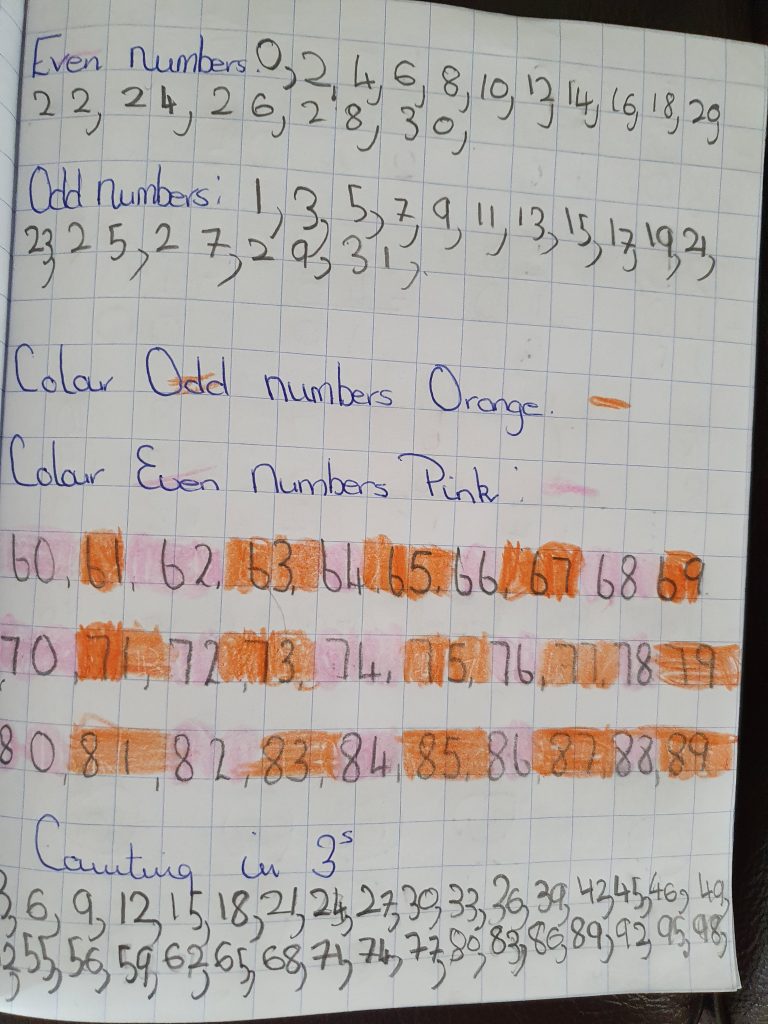 Even numbers: 0, 2, 4, 6, 8, 10, 12, 14, 16, 18, 20
22, 24, 26, 28, 30,
Odd numbers: 1, 3, 5, 7, 9, 11, 13, 15, 17, 19, 21,
23, 25, 27, 29, 31,.
Colour Odd numbers Orange.
Colour Even numbers Pink:
60, 61, 62, 63, 64, 65, 66, 67 68 69
70, 71, 72, 73, 74, 75, 76, 77, 78 79
80, 81, 82, 83, 84, 85, 86, 87 88, 89
Counting in 3s
3, 6, 9, 12, 15, 18, 21, 24, 27, 30, 33, 36, 39, 42, 45, 46, 49,
55, 56, 59, 62, 65, 68, 71, 74, 77, 80, 83, 86, 89, 92, 95, 98,